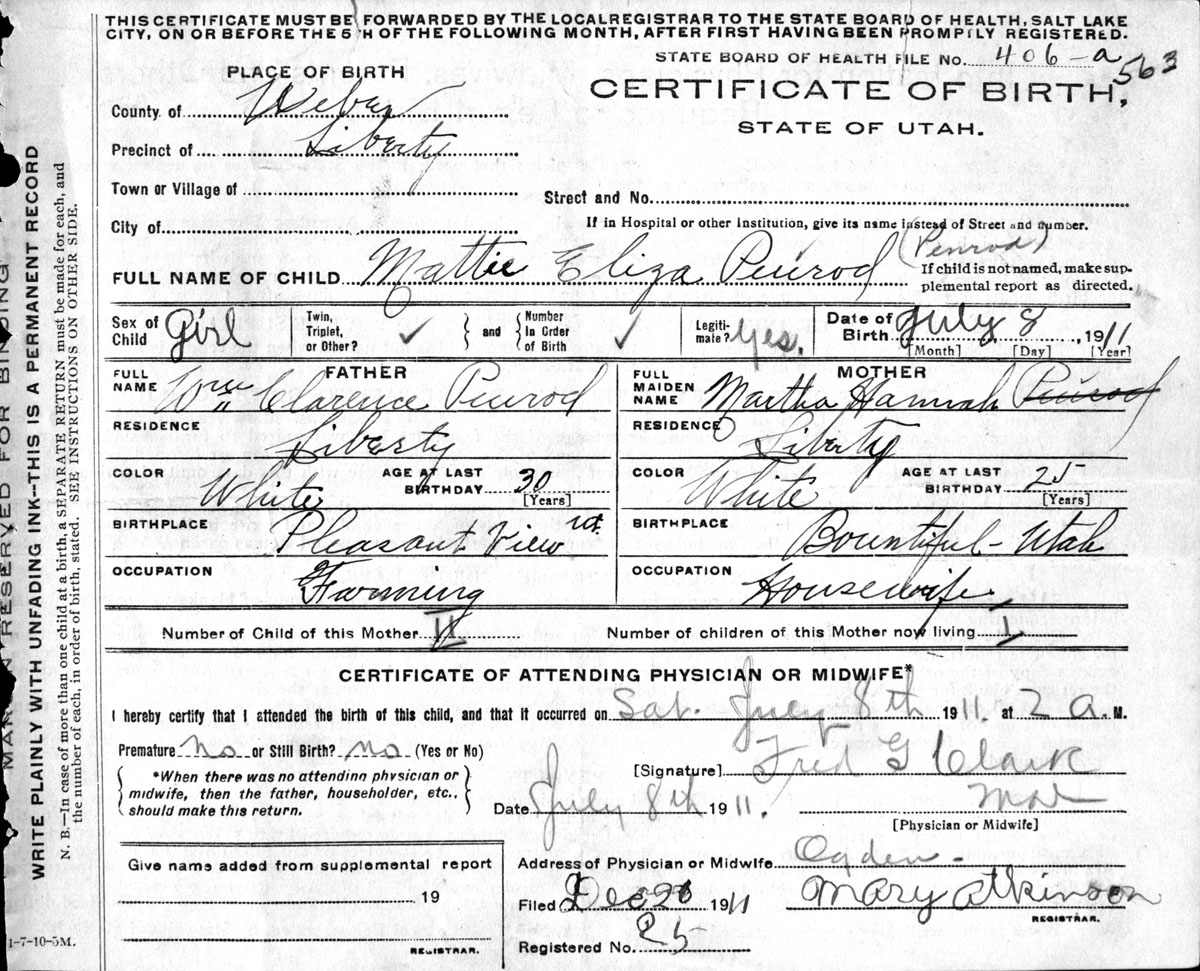 THIS CERTIFICATE MUST BE FORWARDED BY THE LOCAL REGISTRAR TO THE STATE BOARD OF HEALTH, SALT LAKE
CITY, ON OR BEFORE THE 5TH OF THE FOLLOWING MONTH, AFTER FIRST HAVING BEEN PROMPTLY REGISTERED.
STATE BOARD OF HEALTH FILE No. 406-a 563
PLACE OF BIRTH
CERTIFICATE OF BIRTH,
STATE OF UTAH.
County of Weber
Precinct of Liberty
Town or Village of
Street and No.
City of
If in Hospital or other Institution, give its name instead of Street and number.
FULL NAME OF CHILD Mattie Eliza Penrod (Penrod)
If child is not named, make sup-
plemental report as directed.
Sex of Child Girl
Twin, Triplet, or Other? ✓ } and { Number in Order of Birth ✓
Legiti-mate? Yes.
Date of Birth July 8, 1911
[Month] [Day] [Year]
FATHER
FULL NAME Wm Clarence Penrod
RESIDENCE Liberty
COLOR White AGE AT LAST BIRTHDAY 30 [Years]
BIRTHPLACE Pleasant View Ut.
OCCUPATION Farming
MOTHER
FULL MAIDEN NAME Martha Hannah Penrod
RESIDENCE Liberty
COLOR White AGE AT LAST BIRTHDAY [Years]
BIRTHPLACE Bountiful - Utah
OCCUPATION Housewife
Number of Child of this Mother II Number of children of this Mother now living 1
CERTIFICATE OF ATTENDING PHYSICIAN OR MIDWIFE*
I hereby certify that I attended the birth of this child, and that it occurred on Sat. July 8th 1911. at 2 a. M.
Premature No or Still Birth? No (Yes or No)
*When there was no attending physician or
midwife, then the father, householder, etc.,
should make this return.
[Signature] Fred G Clark
Date July 8th 1911.
[Physician or Midwife]
Give name added from supplemental report
19
REGISTRAR.
Address of Physician or Midwife Ogden -
Filed Dec 1911 Mary Atkinson
REGISTRAR.
Registered No. 25
1-7-10-5M.
MARGIN RESERVED FOR BINDING
WRITE PLAINLY WITH UNFADING INK--THIS IS A PERMANENT RECORD
N. B.—In case of more than one child at a birth, a SEPARATE RETURN must be made for each, and
the number of each, in order of birth, stated. SEE INSTRUCTIONS ON OTHER SIDE.